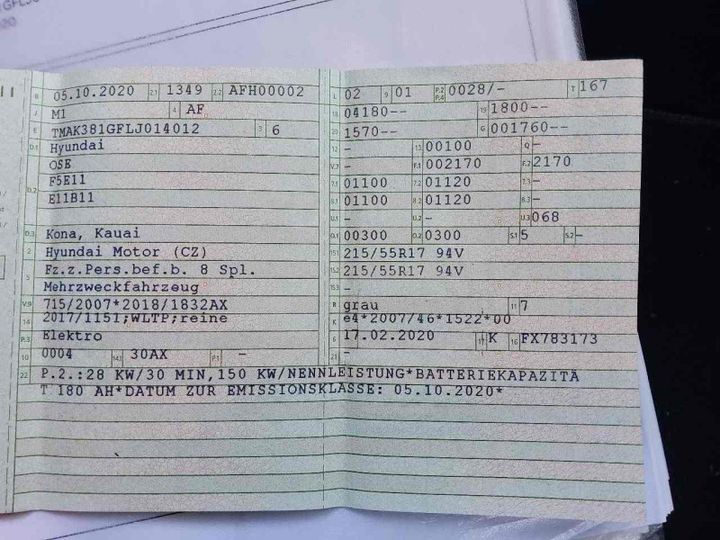 B 05.10.2020 2.1 1349 2.2 AFH00002
J M1 4 AF
E TMAK381GFLJ014012 3 6
D.1 Hyundai
OSE
D.2 F5E11
E11B11
D.3 Kona, Kauai
2 Hyundai Motor (CZ)
5 Fz.z.Pers.bef.b. 8 Spl.
Mehrzweckfahrzeug
V.9 715/2007*2018/1832AX
14 2017/1151;WLTP;reine
P.3 Elektro
10 0004 14.1 30AX P.1 -
22 P.2.:28 KW/30 MIN,150 KW/NENNLEISTUNG*BATTERIEKAPAZITÄ
T 180 AH*DATUM ZUR EMISSIONSKLASSE: 05.10.2020*
L 02 9 01 P.2 P.4 0028/- T 167
18 04180-- 19 1800--
20 1570-- G 001760--
12 - 13 00100 Q -
V.7 - F.1 002170 F.2 2170
7.1 01100 7.2 01120 7.3 -
8.1 01100 8.2 01120 8.3 -
U.1 - U.2 - U.3 068
O.1 00300 O.2 0300 S.1 5 S.2 -
15.1 215/55R17 94V
15.2 215/55R17 94V
15.3 -
R grau 11 7
K e4*2007/46*1522*00
6 17.02.2020 17 K 16 FX783173
21 -